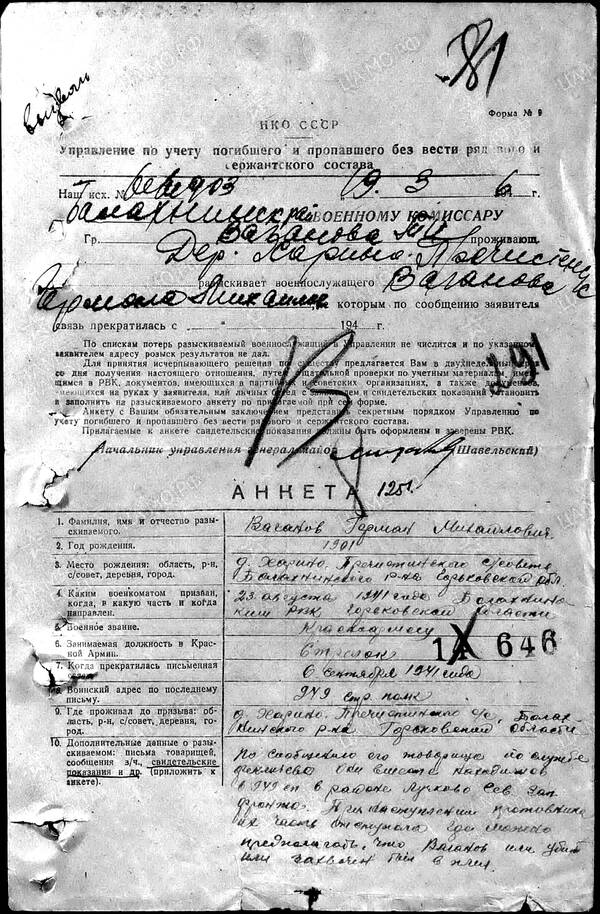 выдом
181
Форма № 9
НКО СССР
Управление по учету погибшего и пропавшего без вести рядового и
сержантского состава
Наш исх. № 19. 3 6 г.
Балахнинскра ВОЕННОМУ КОМИССАРУ
Гр. Ваганова М И проживающ.
Дер. Харино Пречистенск
разыскивает военнослужащего Ваганова
Германа Михайл с которым по сообщению заявителя
связь прекратилась с „ “ 194 г.
По спискам потерь разыскиваемый военнослужащий в Управлении не числится и по указанному
заявителем адресу розыск результатов не дал.
Для принятия исчерпывающего решения по существу предлагается Вам в двухнедельный срок
со дня получения настоящего отношения, путем тщательной проверки по учетным материалам, имею-
щимся в РВК, документов, имеющихся в партийных и советских организациях, а также документов,
имеющихся на руках у заявителя, или личных бесед с заявителем и свидетельских показаний установить
и заполнить на разыскиваемого анкету по прилагаемой при сем форме.
Анкету с Вашим обязательным заключением представить секретным порядком Управлению по
учету погибшего и пропавшего без вести рядового и сержантского состава.
Прилагаемые к анкете свидетельские показания должны быть оформлены и заверены РВК.
191
Начальник управления генерал-майор (Шавельский)
АНКЕТА 1251
1. Фамилия, имя и отчество разы-
скиваемого.
Ваганов Герман Михайлович
2. Год рождения.
1901
3. Место рождения: область, р-н,
с/совет, деревня, город.
д. Харино. Пречистинского с/совета
Балахнинского р-на Горьковской обл.
4. Каким военкоматом призван,
когда, в какую часть и когда
направлен.
23 августа 1941 года Балахнинс
ким РВК Горьковской области
5. Военное звание.
Красноармеец
6. Занимаемая должность в Крас-
ной Армии.
Стрелок
14 646
7. Когда прекратилась письменная
6 сентября 1941 года
8. Воинский адрес по последнему
письму.
949 стр. полк
9. Где проживал до призыва: об-
ласть, р-н, с/совет, деревня, го-
род.
д. Харино. Пречистинского с/с, Балах-
нинского р-на Горьковской области
10. Дополнительные данные о разы-
скиваемом: письма товарищей,
сообщения з/ч., свидетельские
показания и др. (приложить к
анкете).
По сообщению его товарища по службе
они вместе находились
в 949 сп в районе Лучково Сев. Зап.
фронта. При наступлении противника
их часть отступала где можно
предполагать, что Ваганов или убит
или захвачен был в плен.